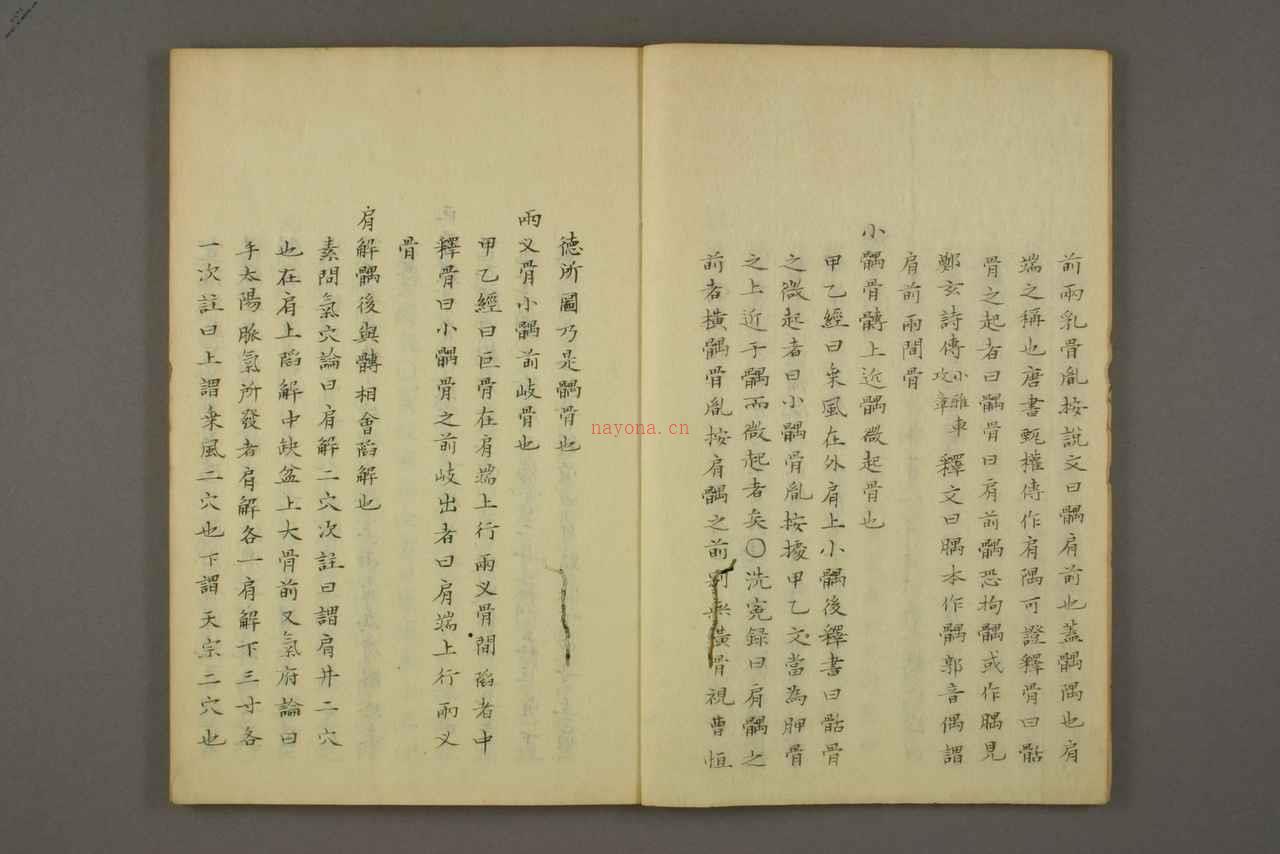 前兩乳骨胤按説文曰髃肩前也蓋髃隅也肩
端之稱也唐書甄權傳作肩隅可證釋骨曰骷
骨之起者曰髃骨曰肩前髃恐拘髃或作腢見
鄭玄詩傳小雅車攻章釋文曰腢本作髃郭音偶謂
肩前兩間骨
小髃骨髆上近髃微起骨也
甲乙經曰乗風在外肩上小髃後釋書曰骷骨
之微起者曰小髃骨胤按據甲乙文當為胛骨
之上近于髃而微起者矣〇洗寃録曰肩髃之
前者橫髃骨胤按肩髃之前別無橫骨視曹恒
徳所圖乃是髃骨也
兩叉骨小髃前岐骨也
甲乙經曰巨骨在肩端上行兩叉骨間陷者中
釋骨曰小髃骨之前岐出者曰肩端上行兩叉
骨
肩解髃後與髆相會陷解也
素問氣穴論曰肩解二穴次註曰謂肩井二穴
也在肩上陷解中缺盆上大骨前又氣府論曰
手太陽脈氣所發者肩解各一肩解下三寸各
一次註曰上謂乗風二穴也下謂天宗二穴也
nayona.cn